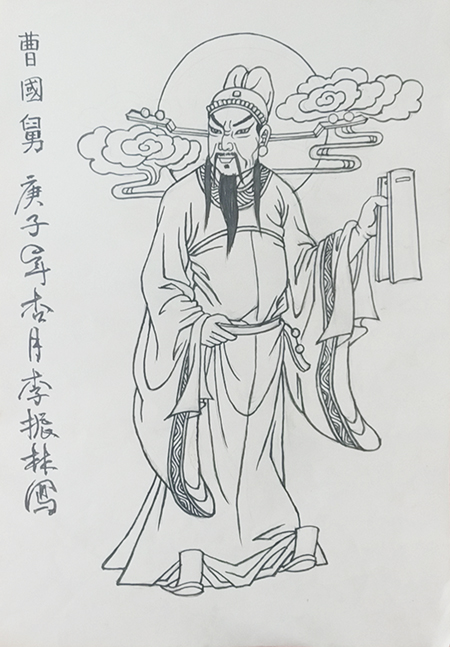 曹國舅 庚子年杏月李振林寫